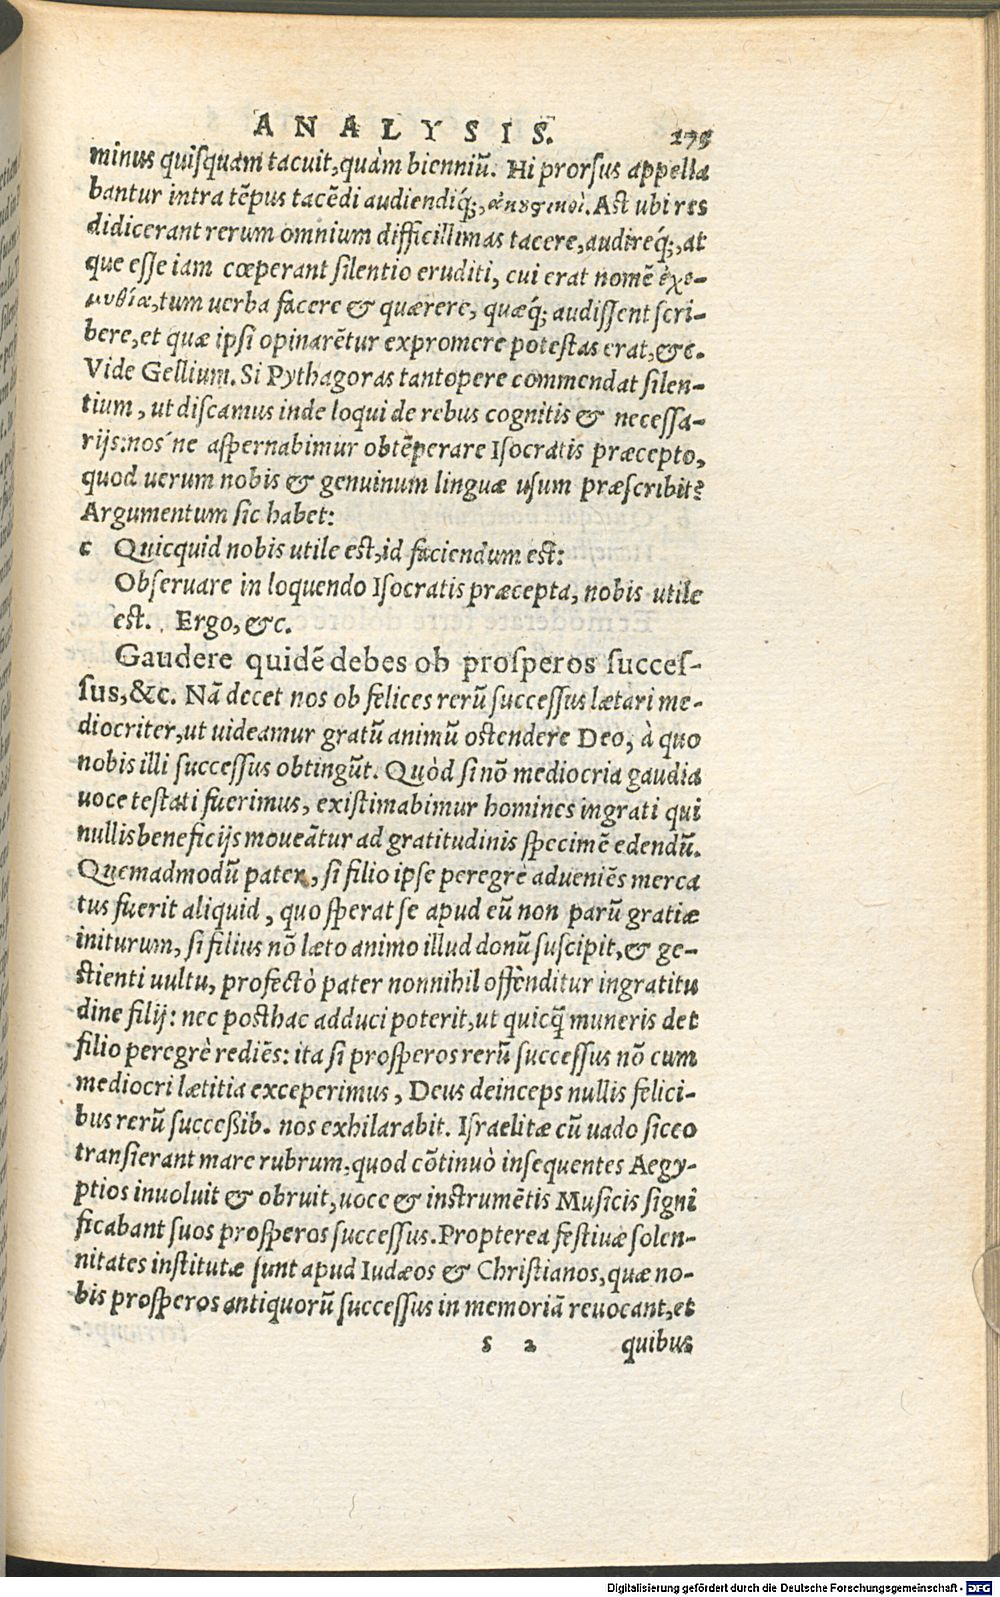 ANALYSIS. 275
minus quisquam tacuit, quàm bienniũ. Hi prorsus appella
bantur intra tẽpus tacẽdi audiendiq́;, ἀκουστικοὶ. Ast ubi res
didicerant rerum omnium difficillimas tacere, audireq́;, at
que esse iam cœperant silentio eruditi, cui erat nomẽ ἐχε-
μυθίας, tum uerba facere & quærere, quæq́; audissent scri-
bere, et quæ ipsi opinarẽtur expromere potestas erat, &c.
Vide Gellium. Si Pythagoras tantopere commendat silen-
tium, ut discamus inde loqui de rebus cognitis & necessa-
rijs: nos´ne aspernabimur obtẽperare Isocratis præcepto,
quod uerum nobis & genuinum linguæ usum præscribit?
Argumentum sic habet:
c Quicquid nobis utile est, id faciendum est:
Obseruare in loquendo Isocratis præcepta, nobis utile
est. Ergo, &c.
Gaudere quidẽ debes ob prosperos succes-
sus, &c. Nã decet nos ob felices rerũ successus lætari me-
diocriter, ut uideamur gratũ animũ ostendere Deo, à quo
nobis illi successus obtingũt. Quòd si nõ mediocria gaudia
uoce testati fuerimus, existimabimur homines ingrati qui
nullis beneficijs moueãtur ad gratitudinis specimẽ edendũ.
Quemadmodũ pater, si filio ipse peregrè adueniẽs merca
tus fuerit aliquid, quo sperat se apud eũ non parũ gratiæ
initurum, si filius nõ læto animo illud donũ suscipit, & ge-
stienti uultu, profectò pater nonnihil offenditur ingratitu
dine filij: nec posthac adduci poterit, ut quicq̃ muneris det
filio peregrè rediẽs: ita si prosperos rerũ successus nõ cum
mediocri lætitia exceperimus, Deus deinceps nullis felici-
bus rerũ successib. nos exhilarabit. Israelitæ cũ uado sicco
transierant mare rubrum, quod cõtinuò insequentes Aegy-
ptios inuoluit & obruit, uoce & instrumẽtis Musicis signi
ficabant suos prosperos successus. Propterea festiuæ solen-
nitates institutæ sunt apud Iudæos & Christianos, quæ no-
bis prosperos antiquorũ successus in memoriã reuocant, et
s 2 quibus
Digitalisierung gefördert durch die Deutsche Forschungsgemeinschaft - DFG